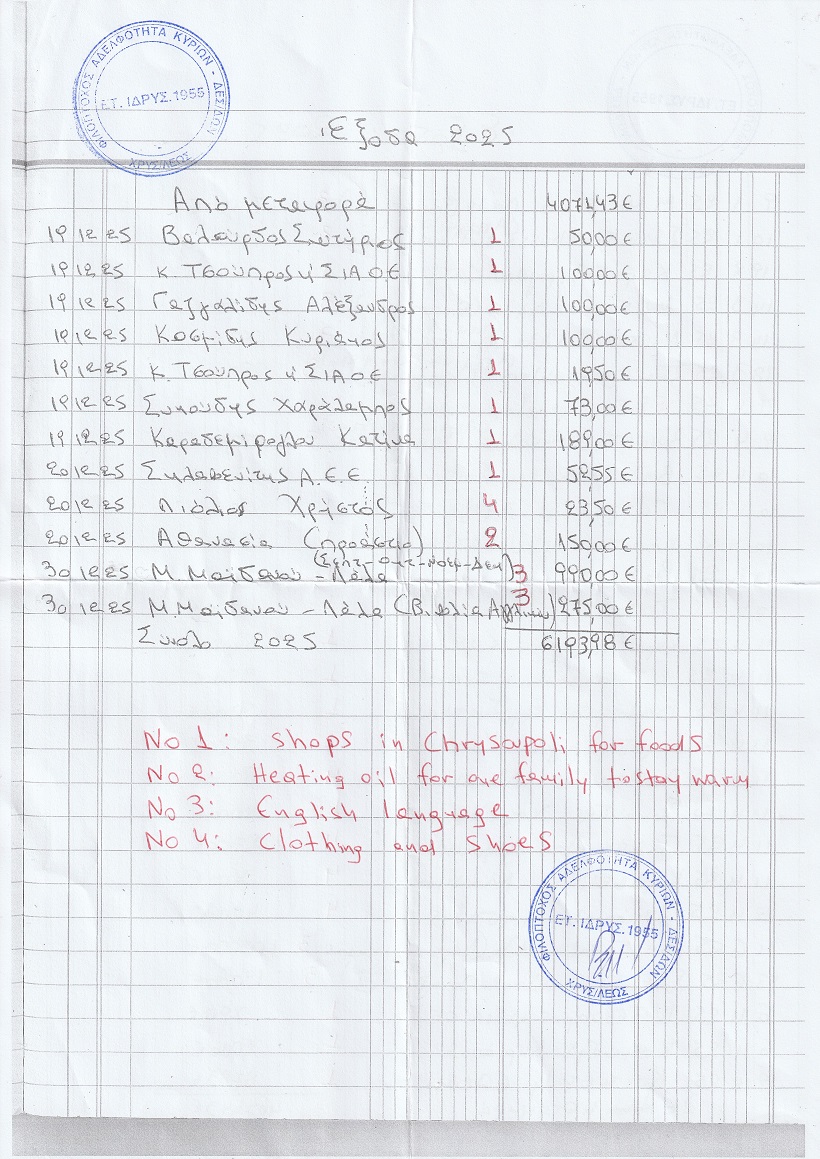 ΦΙΛΟΠΤΩΧΟΣ ΑΔΕΛΦΟΤΗΤΑ ΚΥΡΙΩΝ - ΔΕΣ/ΔΩΝ
ΕΤ. ΙΔΡΥΣ. 1955
ΧΡΥΣ/ΛΕΩΣ
Έξοδα 2025
Από μεταφορά 4071,43 €
19 12 25 Βαλαυρδος Σωτήριος 1 50,00 €
19 12 25 Κ. Τσούπρος κ' ΣΙΑ Ο.Ε 1 100,00 €
19 12 25 Γαζγαλίδης Αλέξανδρος 1 100,00 €
19 12 25 Κοσμίδης Κυριάκος 1 100,00 €
19 12 25 Κ. Τσούπρος κ' ΣΙΑ Ο Ε 1 19,50 €
19 12 25 Χαράλαμπος 1 73,00 €
19 12 25 Καραδεμίρογλου Κατίνα 1 189,00 €
20 12 25 Σκλαβενίτης Α.Ε.Ε. 1 52,55 €
20 12 25 Χρήστος 4 23,50 €
20 12 25 Αθανασία (προάστιο) 2 150,00 €
30 12 25 Μ. Μαϊδανού - Λάλα (Σεπτ-Οκτ-Νοεμ-Δεκ) 3 990,00 €
30 12 25 Μ. Μαϊδανού - Λάλα (Βιβλία Αγγλικών) 3 275,00 €
Σύνολο 2025 6193,98 €
No 1: shops in Chrysoupoli for foods
No 2: Heating oil for one family to stay warm
No 3: English language
No 4: Clothing and shoes
ΦΙΛΟΠΤΩΧΟΣ ΑΔΕΛΦΟΤΗΤΑ ΚΥΡΙΩΝ - ΔΕΣ/ΔΩΝ
ΕΤ. ΙΔΡΥΣ. 1955
ΧΡΥΣ/ΛΕΩΣ